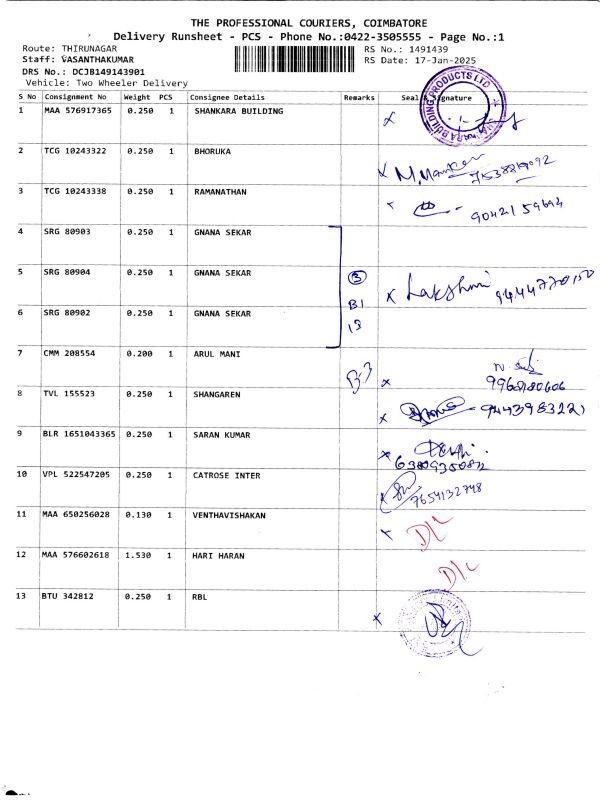 THE PROFESSIONAL COURIERS, COIMBATORE
Delivery Runsheet - PCS - Phone No.:0422-3505555 - Page No.:1
Route: THIRUNAGAR RS No.: 1491439
Staff: VASANTHAKUMAR RS Date: 17-Jan-2025
DRS No.: DCJB149143901
Vehicle: Two Wheeler Delivery
S No Consignment No Weight PCS Consignee Details Remarks Seal & Signature
1 MAA 576917365 0.250 1 SHANKARA BUILDING x
BUILDING PRODUCTS LTD
2 TCG 10243322 0.250 1 BHORUKA x
3 TCG 10243338 0.250 1 RAMANATHAN
4 SRG 80903 0.250 1 GNANA SEKAR
5 SRG 80904 0.250 1 GNANA SEKAR 3 x Lakshmi
B1
6 SRG 80902 0.250 1 GNANA SEKAR 13
7 CMM 208554 0.200 1 ARUL MANI B-3 x
8 TVL 155523 0.250 1 SHANGAREN x
9 BLR 1651043365 0.250 1 SARAN KUMAR x
10 VPL 522547205 0.250 1 CATROSE INTER x 7654132748
11 MAA 650256028 0.130 1 VENTHAVISHAKAN D/L
12 MAA 576602618 1.530 1 HARI HARAN D/L
13 BTU 342812 0.250 1 RBL x